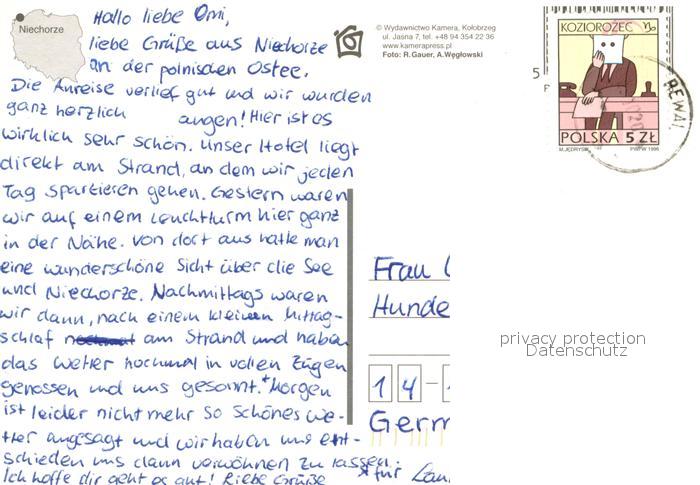 Niechorze
Hallo liebe Omi,
liebe Grüße aus Niechorze
an der polnischen Ostee.
Die Anreise verlief gut und wir wurden
ganz herzlich angen! Hier ist es
wirklich sehr schön. Unser Hotel liegt
direkt am Strand, an dem wir jeden
Tag spazieren gehen. Gestern waren
wir auf einem Leuchtturm hier ganz
in der Nähe. Von dort aus hatte man
eine wunderschöne Sicht über die See
und Niechorze. Nachmittags waren
wir dann, nach einem kleinen Mittag-
schlaf am Strand und haben
das Wetter nochmal in vollen Zügen
genossen und uns gesonnt.* Morgen
ist leider nicht mehr so schönes We-
tter angesagt und wir haben uns ent-
schieden uns dann verwöhnen zu lassen.
Ich hoffe dir geht es gut! Liebe Grüße
*für
© Wydawnictwo Kamera, Kołobrzeg
ul. Jasna 7, tel. +48 94 354 22 36
www.kamerapress.pl
Foto: R.Gauer, A.Węglowski
KOZIOROŻEC
POLSKA 5 ZŁ
M.JĘDRYSIK PWPW 1996
REWAL
5
F
Frau
Hunde
14-
Germ
privacy protection
Datenschutz